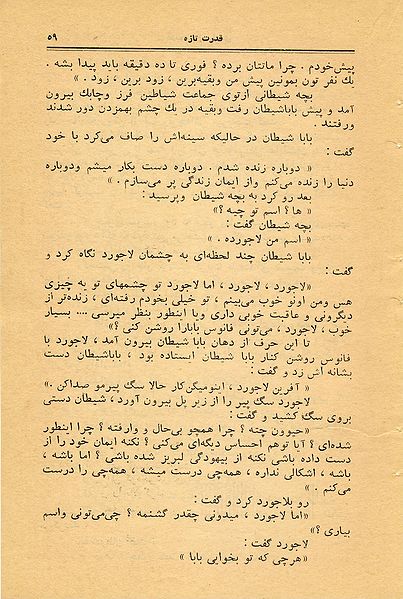 قدرت تازه ۵۹
پیش‌خودم . چرا ماتتان برده ؟ فوری تا ده دقیقه باید پیدا بشه .
یك نفر تون بمونین پیش من وبقیه‌برین ، زود برین ، زود . »
بچه شیطانی ازتوی جماعت شیاطین فرز وچابك بیرون
آمد و پیش باباشیطان رفت وبقیه در یك چشم بهمزدن دور شدند
ورفتند .
بابا شیطان در حالیکه سینه‌اش را صاف می‌کرد با خود
گفت :
« دوباره زنده شدم . دوباره دست بکار میشم ودوباره
دنیا را زنده می‌کنم واز ایمان زندگی پر می‌سازم . »
بعد رو کرد به بچه شیطان وپرسید :
« ها ؟ اسم تو چیه ؟»
بچه شیطان گفت :
« اسم من لاجورده . »
بابا شیطان چند لحظه‌ای به چشمان لاجورد نگاه کرد و
گفت :
«لاجورد ، لاجورد ، اما لاجورد تو چشمهای تو یه چیزی
هس ومن اونو خوب می‌بینم ، تو خیلی بخودم رفته‌ای ، زنده‌تر از
دیگرونی و عاقبت خوبی داری ویا اینطور بنظر میرسی .... بسیار
خوب ، لاجورد ، می‌تونی فانوس بابارا روشن کنی ؟»
تا این حرف از دهان بابا شیطان بیرون آمد ، لاجورد با
فانوس روشن کنار بابا شیطان ایستاده بود ، باباشیطان دست
بشانه اش زد و گفت :
« آفرین لاجورد ، اینومیگن‌کار حالا سگ پیرمو صداکن .»
لاجورد سگ پیر را از زیر پل بیرون آورد ، شیطان دستی
بروی سگ کشید و گفت :
«حیوون چته ؟ چرا همچو بی‌حال و وارفته ؟ چرا اینطور
شده‌ای ؟ آیا توهم احساس دیگه‌ای می‌کنی ؟ نکنه ایمان خود را از
دست داده باشی نکنه از بیهودگی لبریز شده باشی ؟ اما باشه ،
باشه ، اشکالی نداره ، همه‌چی درست میشه ، همه‌چی را درست
می‌کنم . »
رو بلاجورد کرد و گفت :
«اما لاجورد ، میدونی چقدر گشنمه ؟ چی‌می‌تونی واسم
بیاری ؟»
لاجورد گفت :
«هرچی که تو بخوابی بابا »